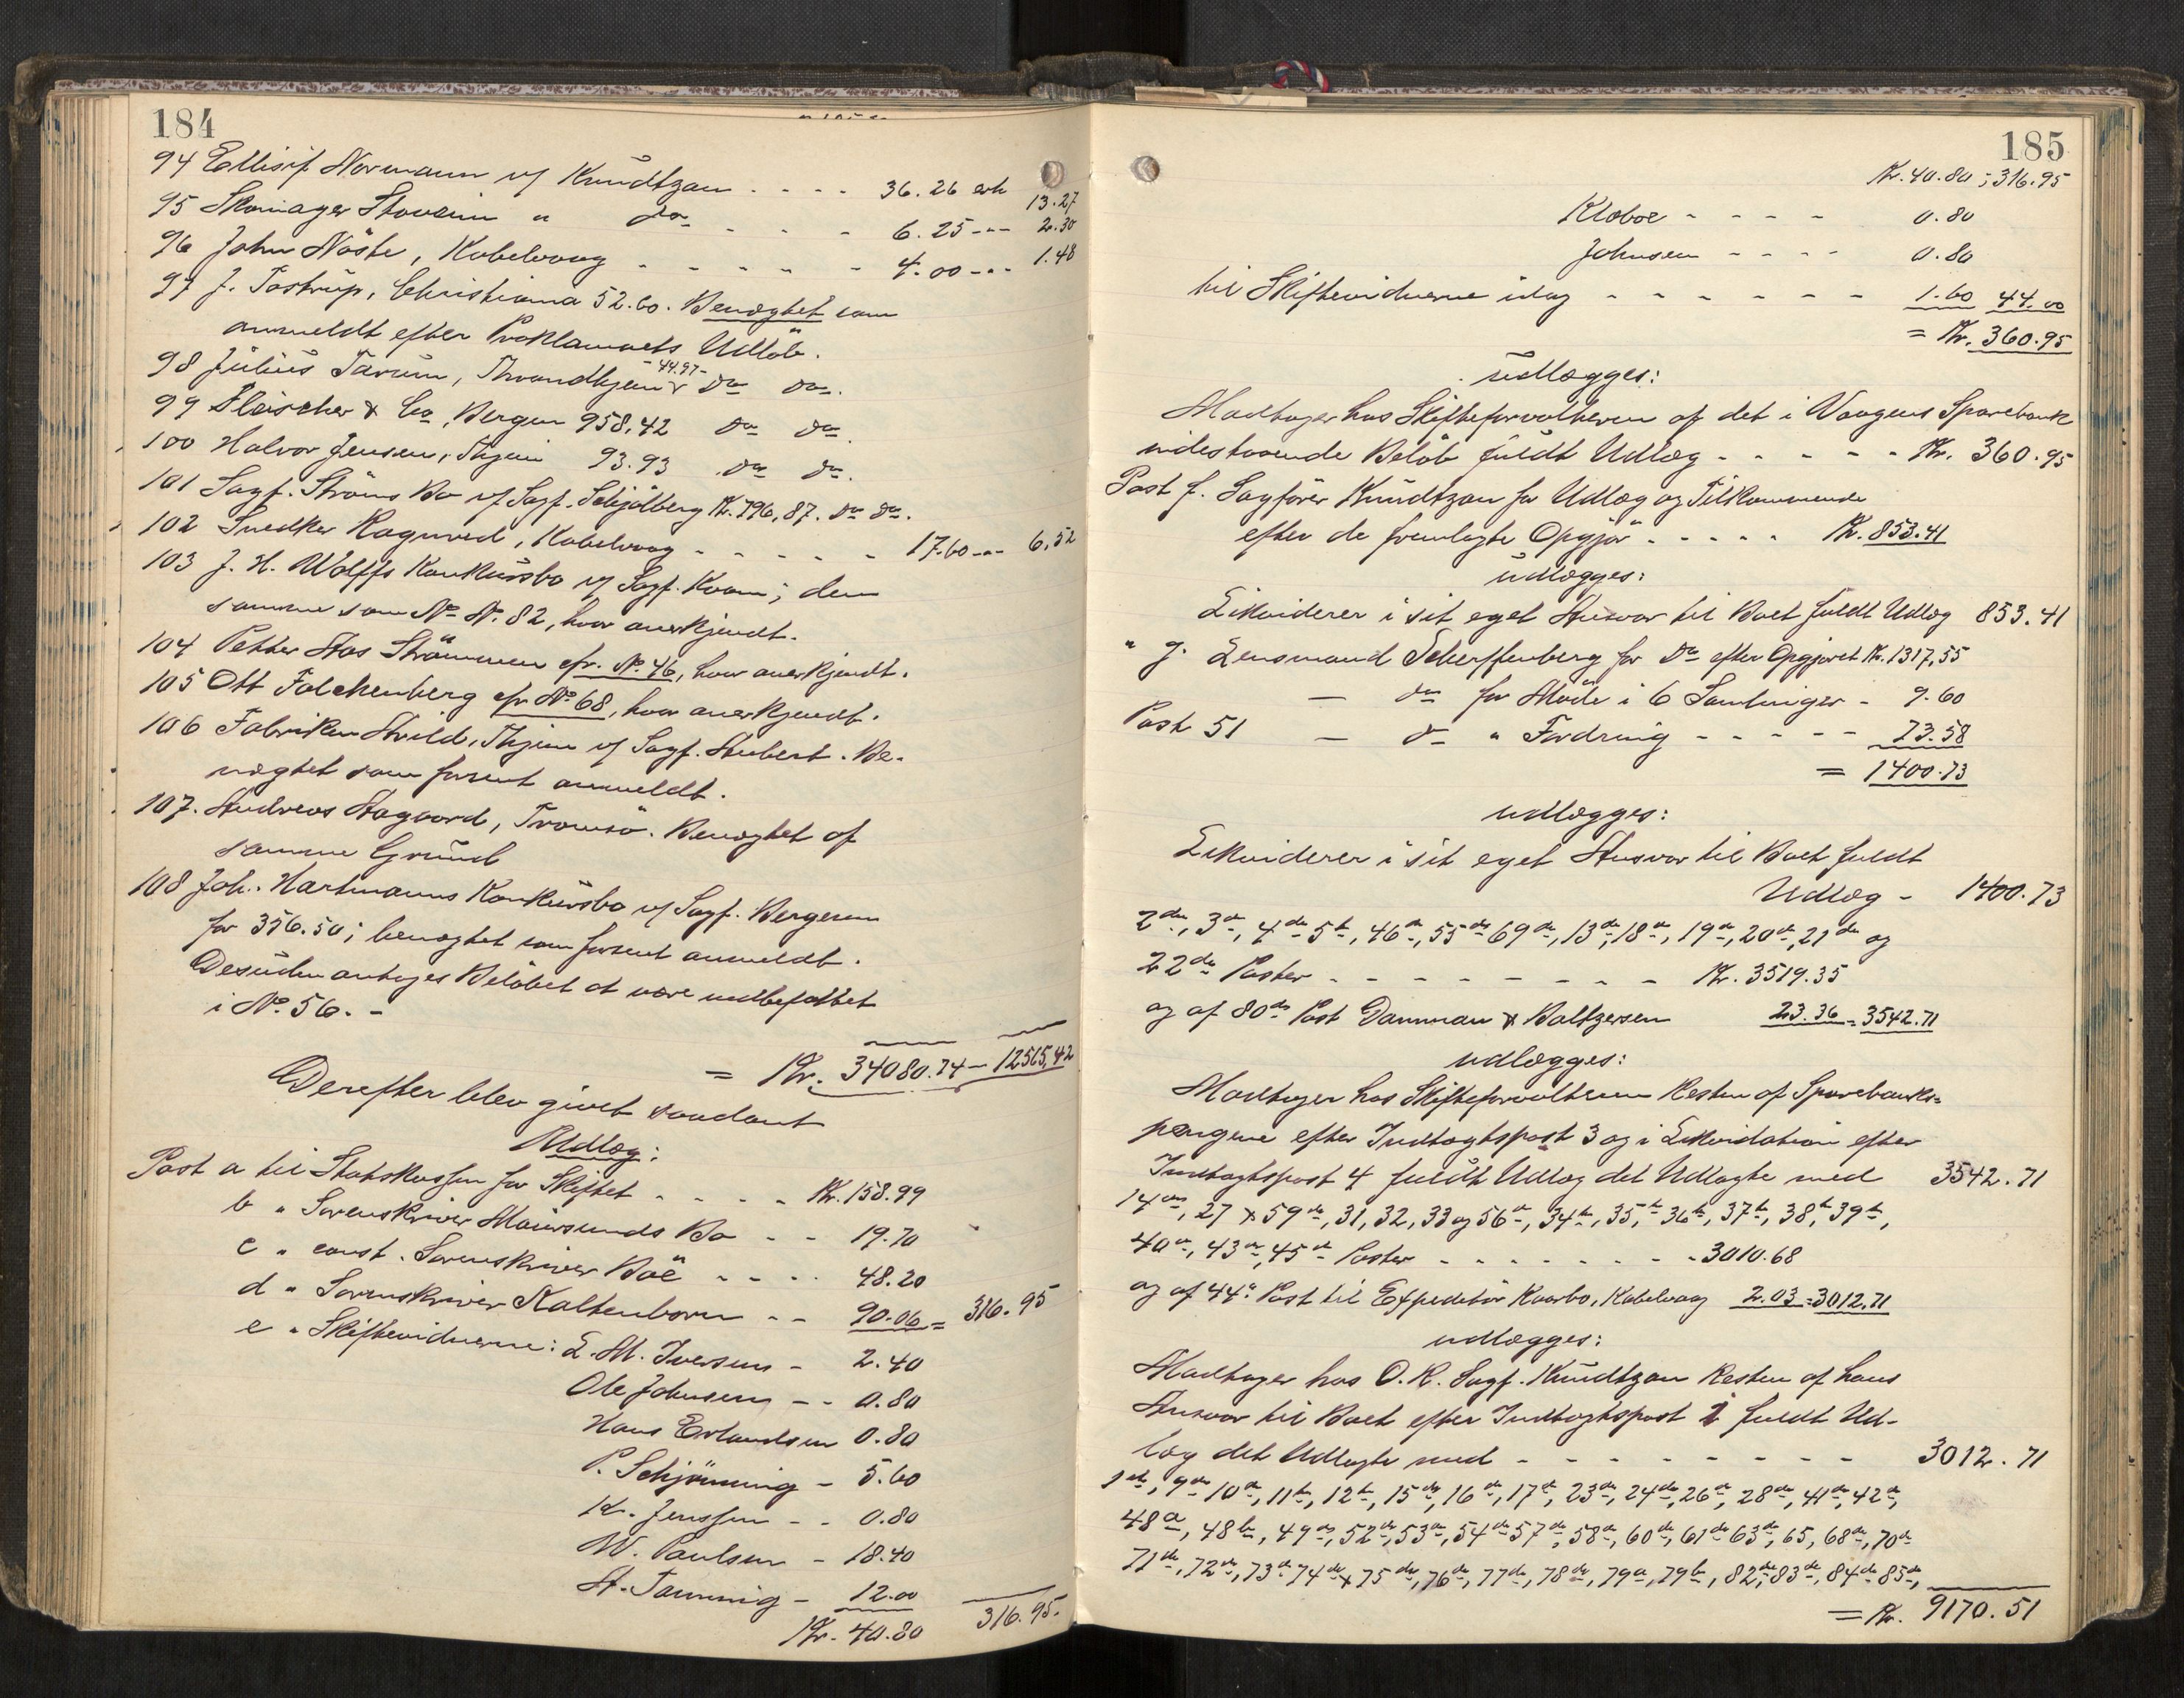 184
94 Ellisif Normann v/ Kundtzon - - - - 36.26 erh 13.27
95 Skomager Stovein " do - - - 6.25 -"- 2.30
96 John Nöste, Kabelvaag - - - - - 4.00 -"- 1.48
97 J. Tostrup, Christiania 52.60. Benægtet som
anmeldt efter Proklamaets Udløb.
98 Julius Tavum, Throndhjem -44.97- do do.
99 Fleischer & Co, Bergen 958.42 do do.
100 Halvor Jensen, Thjem 93.93 do do.
101 Sagf. Ströms Bo v/ Sagf. Schjölberg Kr. 796,87. do do.
102 Snedker Ragnved, Kabelvaag - - - - - 17.60 -"- 6,52
103 J. H. Wolffs Konkursbo v/ Sagf. Kvam; den
samme som No N. 82, hvor anerkjendt.
104 Petter Aas Strömmen cfr. No. 46, hvor anerkjendt.
105 Ott Falchenberg cfr No 68, hvor anerkjendt.
106 Fabriken Skrild, Thjem v/ Sagf. Aubert. Be-
nægtet som forsent anmeldt.
107. Andreas Aagaard, Tromsö. Benægtet af
samme Grund
108 Joh. Hartmanns Konkursbo v/ Sagf. Bergesen
for 356.50; benægtet som forsent anmeldt.
Desuden antages Beløbet at være indbefattet
i No. 56. -
= Kr. 34080.74 - 12565,42
Derefter blev givet saadant
Udlæg:
Post a til Statskassen for Skiftet - - - - Kr. 158.99
b " Sorenskriver Maursunds Bo - - 19.70
c " const. Sorenskriver Böe - - - - 48.20
d " Sorenskriver Kaltenborn - - 90.06 = 316.95
e " Skiftevidnerne: L. M. Iversen - 2.40
Ole Johnsen - - 0.80
Hans Erlandsen 0.80
P. Schjönning - 5.60
K. Jenssen - - 0.80
W. Paulsen - 18.40
A. Tanning - 12.00
Kr. 40.80 316.95.
185
Kr. 40.80; 316.95
Kloboe - - - - 0.80
Johnsen - - - - 0.80
til Skiftevidnerne idag - - - - - - 1.60 44.00
= Kr. 360.95
udlægges:
Modtager hos Skifteforvalteren af det i Vaagens Sparebank
indestaaende Beløb fuldt Udlæg - - - - - Kr. 360.95
Post f. Sagförer Kundtzon for Udlæg og Tilkommende
efter de fremlagte Opgjör - - - - - Kr. 853.41
udlægges:
Likviderer i sit eget Ansvar til Boet fuldt Udlæg 853.41
" g. Lensmand Scherffenberg for do efter Opgjøret Kr. 1317,55
— do for Möde i 6 Samlinger - 9.60
Post 51 — do " Fordring - - - - - 73.58
= 1400.73
udlægges:
Likviderer i sit eget Ansvar til Boet fuldt
Udlæg - 1400.73
2den, 3de, 4de 5te, 46de, 55de 69de, 13de, 18de, 19de, 20de, 21de og
22de Poster - - - - - - - - Kr. 3519.35
og af 80de Post Damman & Baltzersen 23.36 = 3542.71
udlægges:
Modtager hos Skifteforvalteren Resten af Sparebanks-
pengene efter Indtægtspost 3 og i Likvidation efter
Indtægtspost 4 fuldt Udlæg det Udlagte med 3542.71
14de, 27 & 59de, 31, 32, 33 og 56de, 34te, 35te 36te, 37te, 38te 39te,
40de, 43de, 45de Poster - - - - - - - 3010.68
og af 44de Post til Expeditör Kaarbo, Kabelvaag 2.03 = 3012.71
udlægges:
Modtager hos O. R. Sagf. Kundtzon Resten af hans
Ansvar til Boet efter Indtægtspost 1 fuldt Ud-
læg det Udlagte med - - - - - - - - 3012.71
1ste, 9de 10de, 11te, 12te, 15de, 16de, 17de, 23de, 24de, 26de, 28de, 41de, 42de,
48a, 48b, 49de, 52de, 53de, 54de 57de, 58de, 60de, 61de 63de, 65, 68de, 70de
71de, 72de, 73de 74de & 75de, 76de, 77de, 78de, 79a, 79b, 82de, 83de, 84de 85de,
= Kr. 9170.51